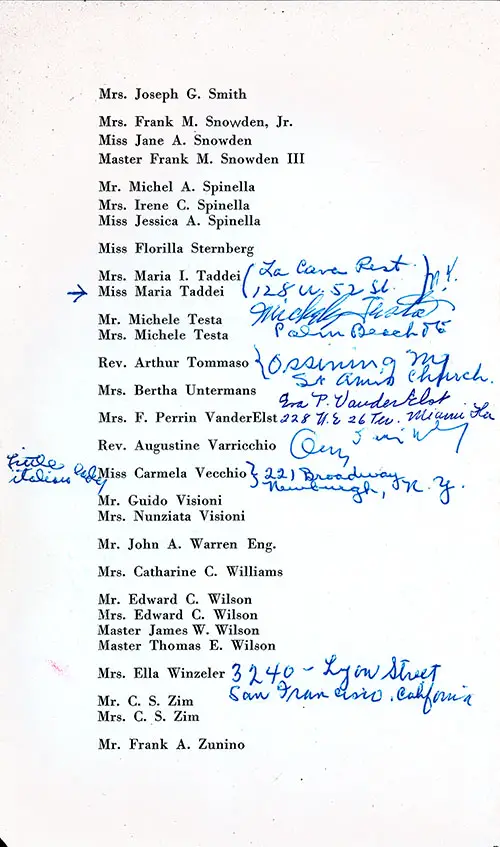 Mrs. Joseph G. Smith
Mrs. Frank M. Snowden, Jr.
Miss Jane A. Snowden
Master Frank M. Snowden III
Mr. Michel A. Spinella
Mrs. Irene C. Spinella
Miss Jessica A. Spinella
Miss Florilla Sternberg
Mrs. Maria I. Taddei ( La Cava Rest. ) N.Y.
→ Miss Maria Taddei ( 128 W. 52 St.
Mr. Michele Testa Michele Testa
Mrs. Michele Testa Palm Beach
Rev. Arthur Tommaso } Ossining NY
St Anns Church.
Mrs. Bertha Untermans Ira P. VanderElst
Mrs. F. Perrin VanderElst 228 N.E 26 Ter. Miami Fla
Rev. Augustine Varricchio
little
italian lady Miss Carmela Vecchio } 221 Broadway
Newburgh, N.Y.
Mr. Guido Visioni
Mrs. Nunziata Visioni
Mr. John A. Warren Eng.
Mrs. Catharine C. Williams
Mr. Edward C. Wilson
Mrs. Edward C. Wilson
Master James W. Wilson
Master Thomas E. Wilson
Mrs. Ella Winzeler 3240 - Lyon Street
San Francisco. California
Mr. C. S. Zim
Mrs. C. S. Zim
Mr. Frank A. Zunino